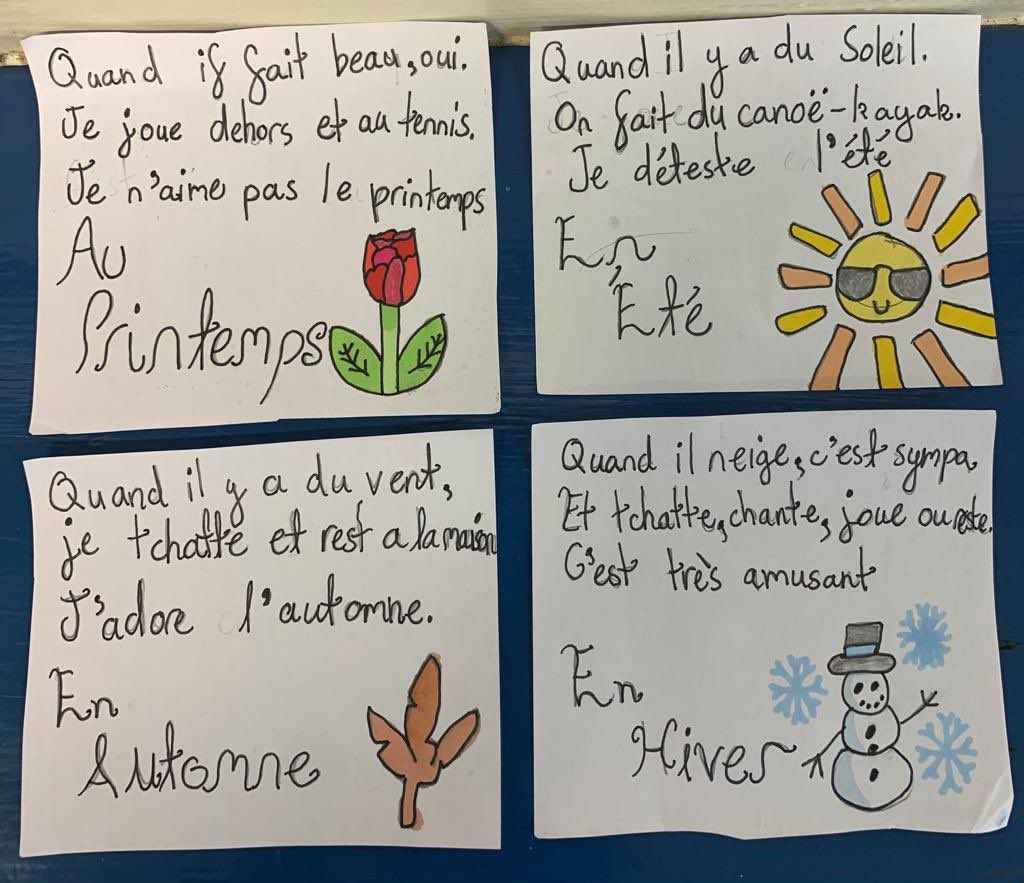 Quand if fait beau, oui.
Je joue dehors et au tennis.
Je n'aime pas le printemps
Au
Printemps
Quand il y a du Soleil.
On fait du canoë-kayak.
Je déteste l'été
En
Été
Quand il y a du vent,
je tchatte et rest a la maison
J'adore l'automne.
En
Automne
Quand il neige, c'est sympa,
Et tchatte, chante, joue ou reste.
C'est très amusant
En
Hiver